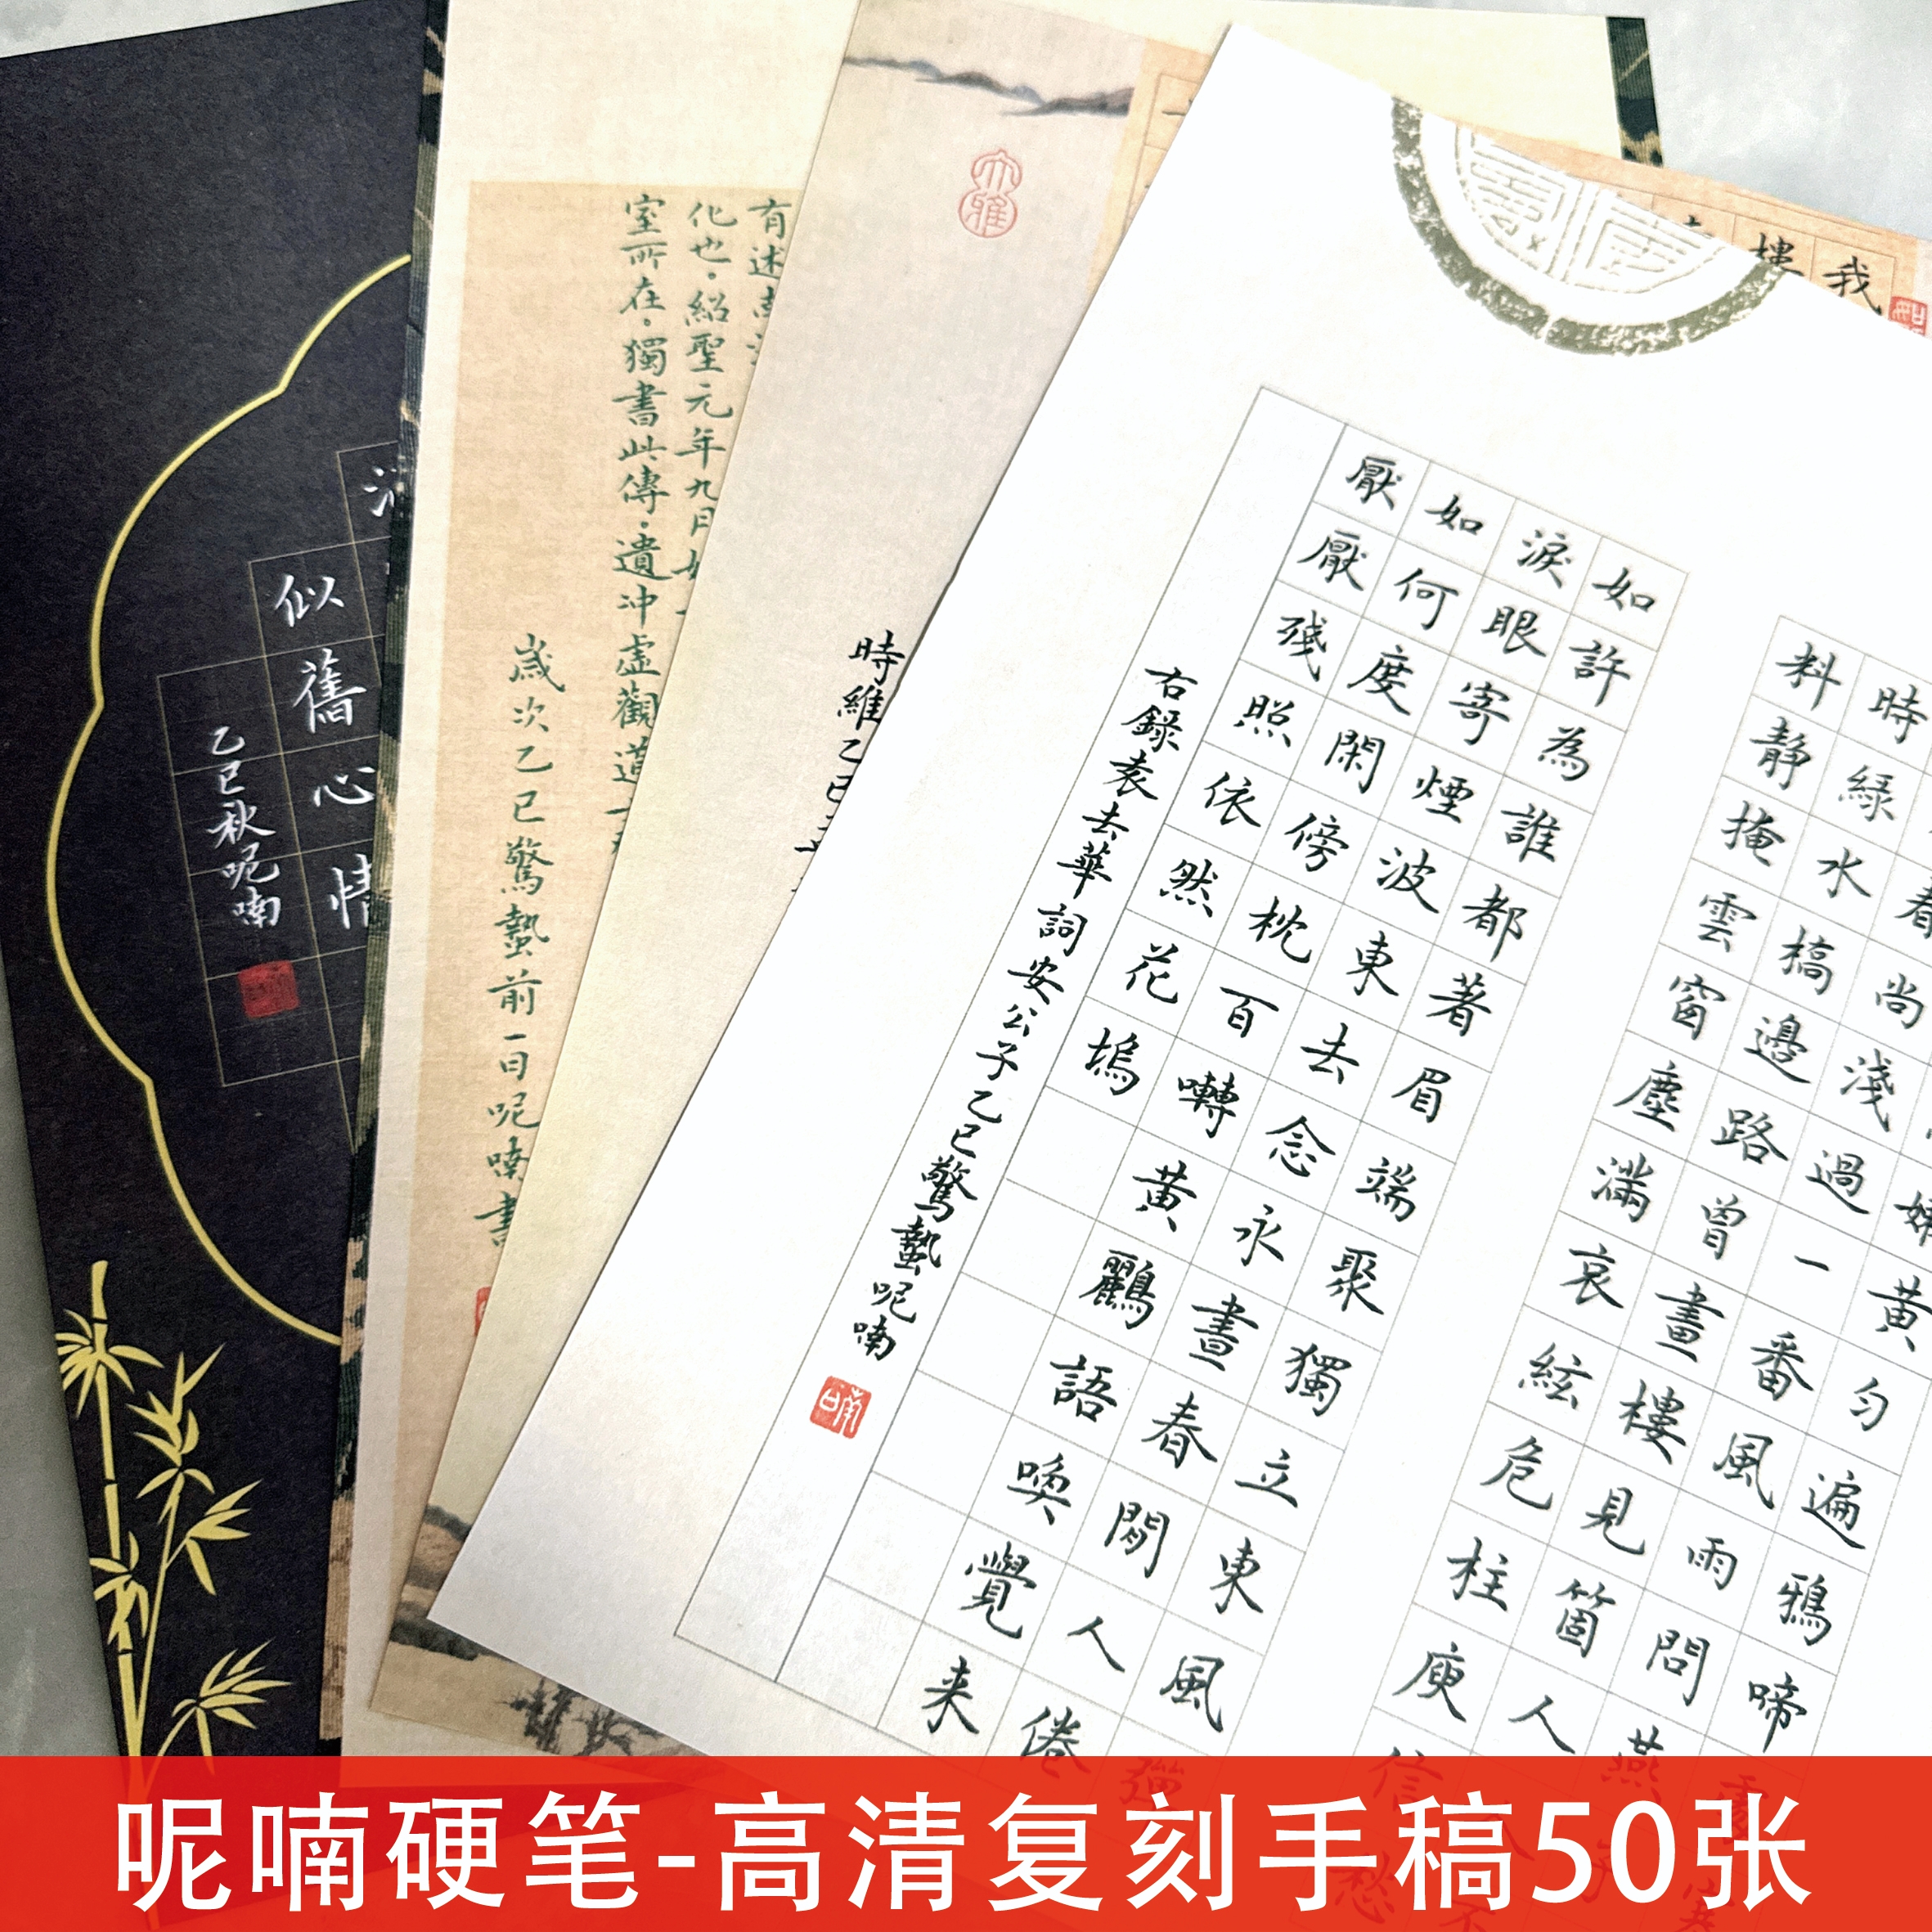 我
樓
嫩黄匀遍鴉啼處
春尚淺過一番風雨問燕子
時緑水橋邊路曾畫樓見箇人人
料靜掩雲窗塵滿哀絃危柱庾信愁
如許為誰都著眉端聚獨立東風彈
淚眼寄煙波東去念永晝春閒人倦
如何度閑傍枕百囀黄鸝語喚覺来
厭厭殘照依然花塢
右録袁去華詞安公子乙巳驚蟄呢喃
大雅
時維乙巳
有述
化也。紹聖元年九月
室所在。獨書此傳。遺冲虛觀道
歲次乙巳驚蟄前一日呢喃書
似舊心情
乙巳秋呢喃
呢喃硬笔-高清复刻手稿50张